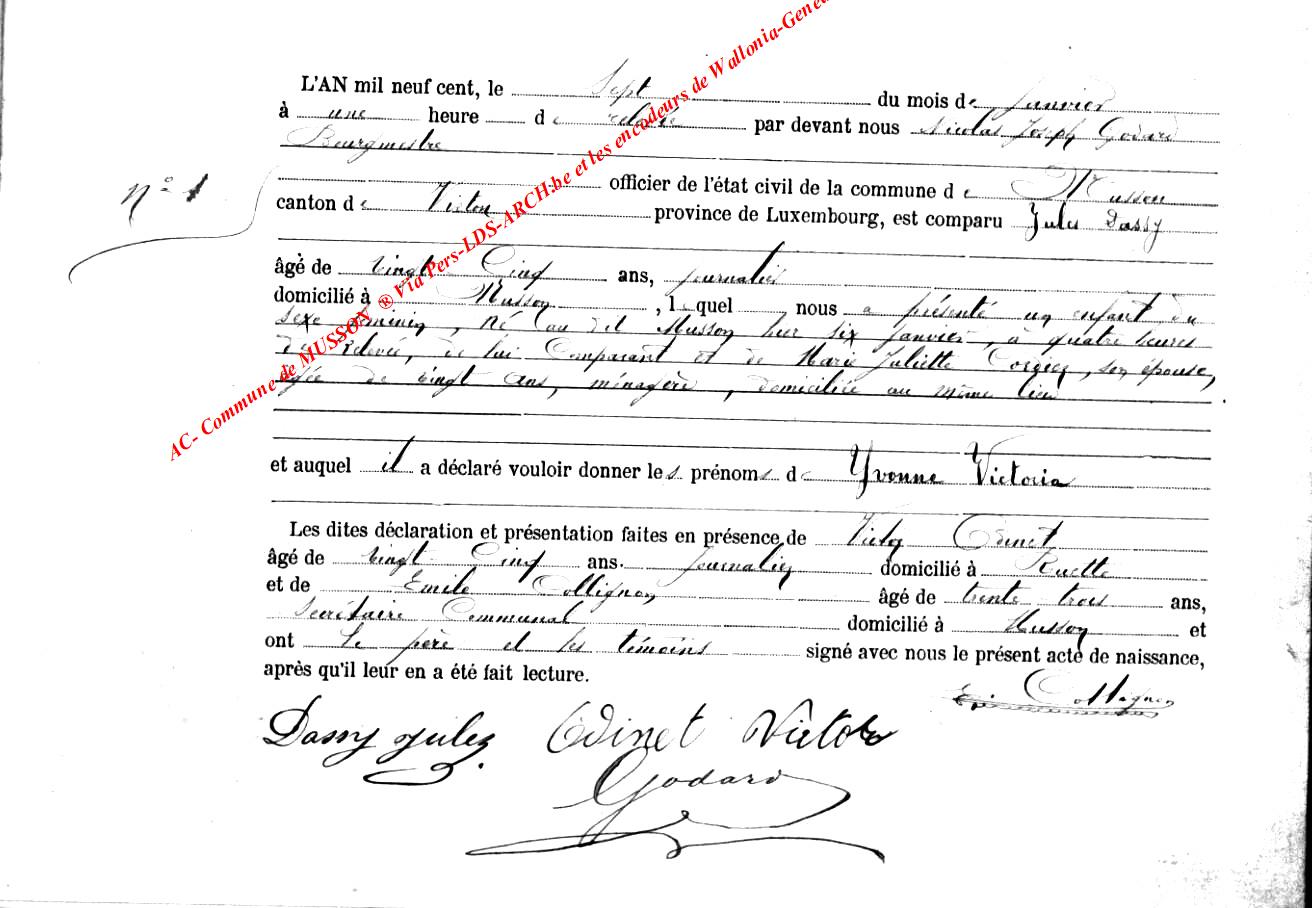 L'AN mil neuf cent, le Sept du mois de Janvier
à une heure de relevée par devant nous Nicolas Joseph Godard
Bourgmestre
N° 1
officier de l'état civil de la commune de Musson
canton de Virton province de Luxembourg, est comparu Jules Dassy
âgé de vingt Cinq ans, journalier
domicilié à Musson, lequel nous a présenté un enfant du
sexe féminin, né au dit Musson hier six Janvier, à quatre heures
de Relevée, de lui Comparant et de Marie Juliette, son épouse,
âgée de vingt ans, ménagère, domiciliée au même lieu
et auquel il a déclaré vouloir donner les prénoms de Yvonne Victoria
Les dites déclaration et présentation faites en présence de Victor Edinet
âgé de vingt Cinq ans. journalier domicilié à Ruette
et de Emile Collignon âgé de trente trois ans,
Secrétaire Communal domicilié à Musson et
ont Le père et les témoins signé avec nous le présent acte de naissance,
après qu'il leur en a été fait lecture.
Em Collignon
Dassy jules Edinet Victor
Godard
AC- Commune de MUSSON ® Via Pers-LDS-ARCH.be et les encodeurs de Wallonia-Genea